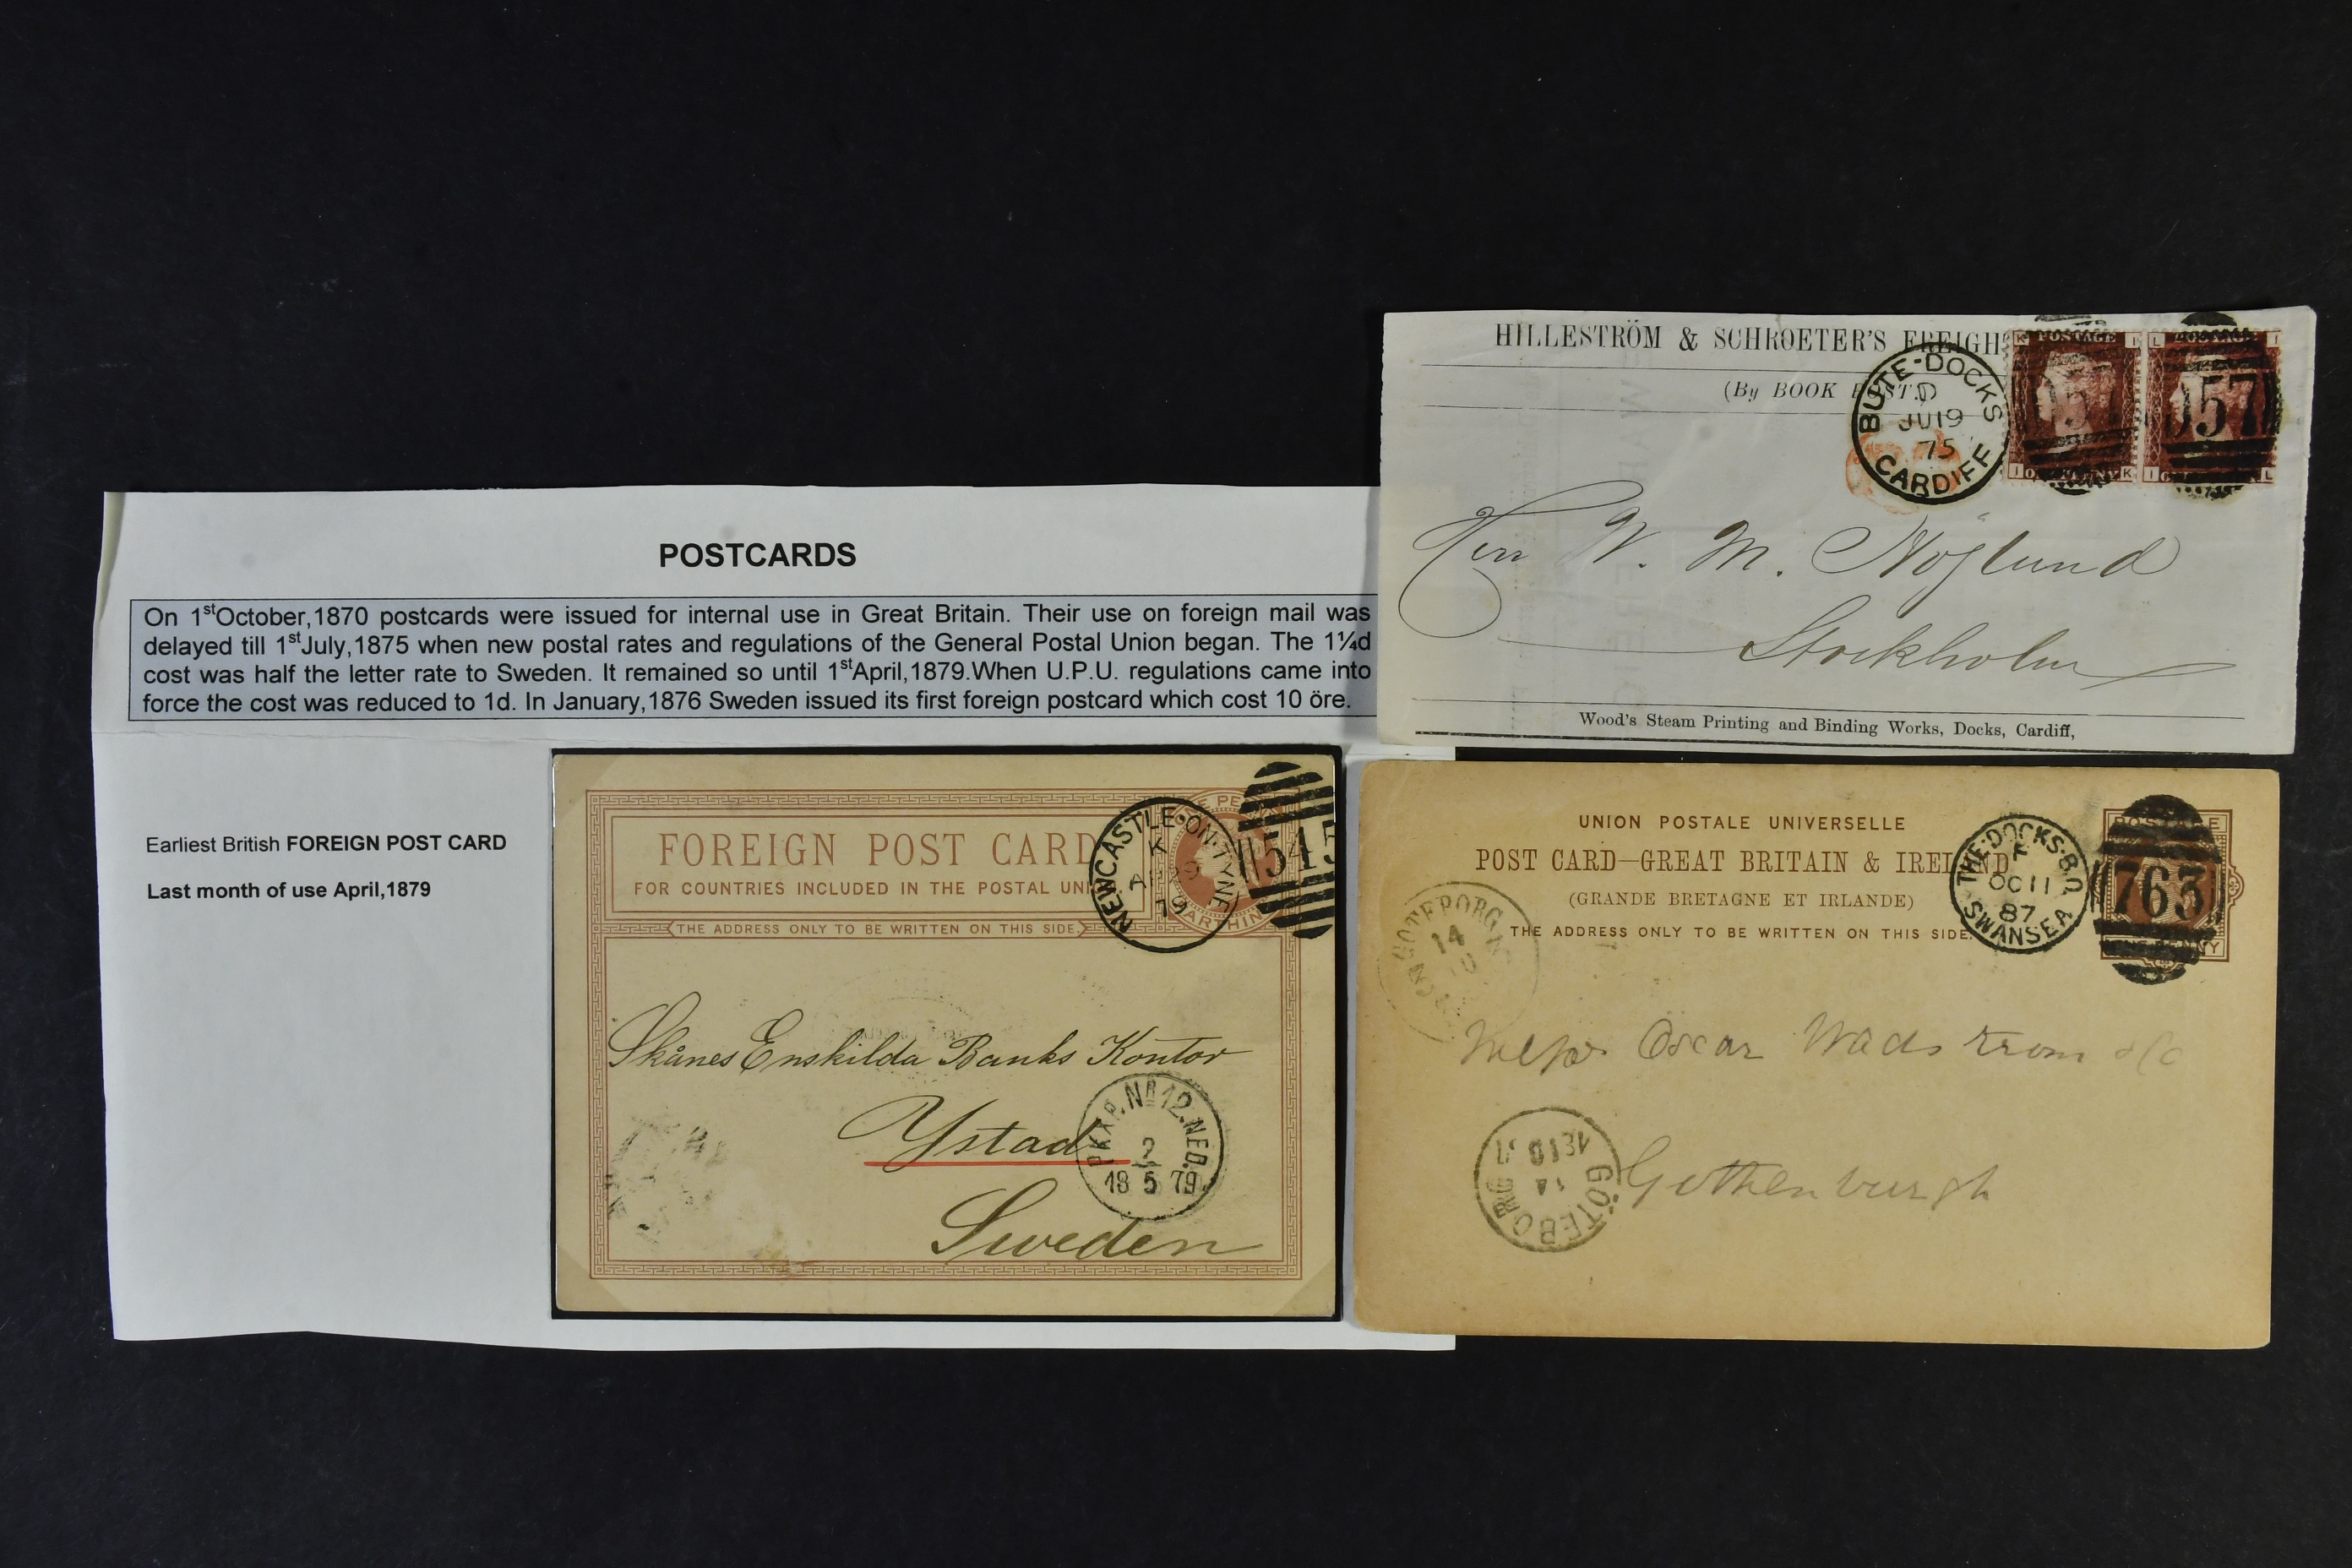 POSTCARDS
On 1stOctober,1870 postcards were issued for internal use in Great Britain. Their use on foreign mail was
delayed till 1stJuly,1875 when new postal rates and regulations of the General Postal Union began. The 1¼d
cost was half the letter rate to Sweden. It remained so until 1stApril,1879.When U.P.U. regulations came into
force the cost was reduced to 1d. In January,1876 Sweden issued its first foreign postcard which cost 10 öre.
Earliest British FOREIGN POST CARD
Last month of use April,1879
FOREIGN POST CARD
FOR COUNTRIES INCLUDED IN THE POSTAL UNI
THE ADDRESS ONLY TO BE WRITTEN ON THIS SIDE.
NEWCASTLE-ON-TYNE
K
79
545
Skånes Enskilda Banks Kontor
Ystad
Sweden
PKXP.No 12.NED.
2
18 5 79
HILLESTRÖM & SCHROETER'S FREIGH
(By BOOK POST.)
BUTE-DOCKS
D
JU19
75
CARDIFF
K POSTAGE I
L POSTAGE I
57
57
I K
I L
Herr W. M. Höglund
Stockholm
Wood's Steam Printing and Binding Works, Docks, Cardiff,
UNION POSTALE UNIVERSELLE
POST CARD—GREAT BRITAIN & IRELAND
(GRANDE BRETAGNE ET IRLANDE)
THE ADDRESS ONLY TO BE WRITTEN ON THIS SIDE.
THE-DOCKS-B.O.
OC 11
87
SWANSEA
POSTAGE
763
GÖTEBORG
14
10
Messrs Oscar Wadstrom & Co
Gothenburgh
GÖTEBORG
14